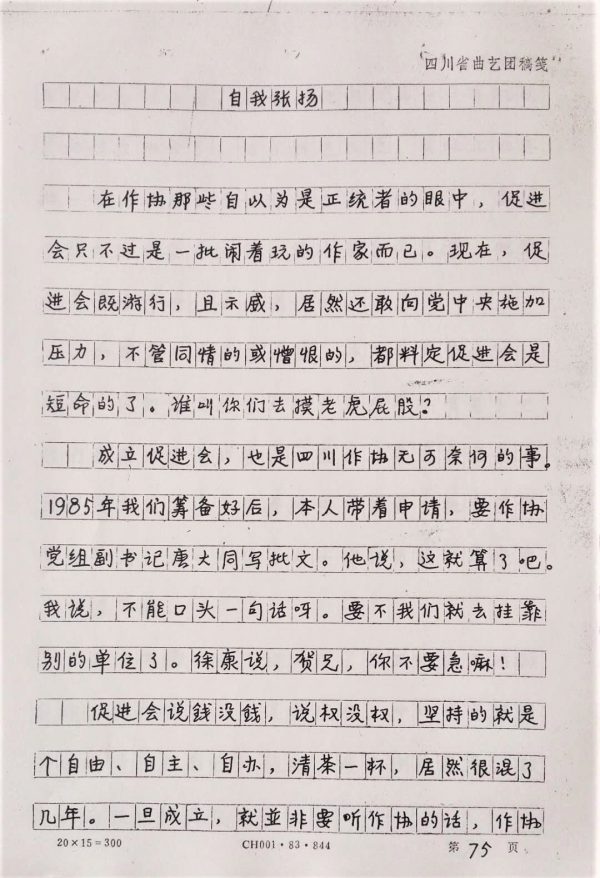 四川省曲艺团稿笺
自我张扬
在作协那些自以为是正统者的眼中，促进
会只不过是一批闹着玩的作家而已。现在，促
进会既游行，且示威，居然还敢向党中央施加
压力，不管同情的或憎恨的，都料定促进会是
短命的了。谁叫你们去摸老虎屁股？
成立促进会，也是四川作协无可奈何的事。
1985年我们筹备好后，本人带着申请，要作协
党组副书记唐大同写批文。他说，这就算了吧。
我说，不能口头一句话呀。要不我们就去挂靠
别的单位了。徐康说，贺兄，你不要急嘛！
促进会说錢没錢，说权没权，坚持的就是
个自由、自主、自办，清茶一杯，居然很混了
几年。一旦成立，就並非要听作协的话，作协
20×15=300
CH001·83·844
第 75 页